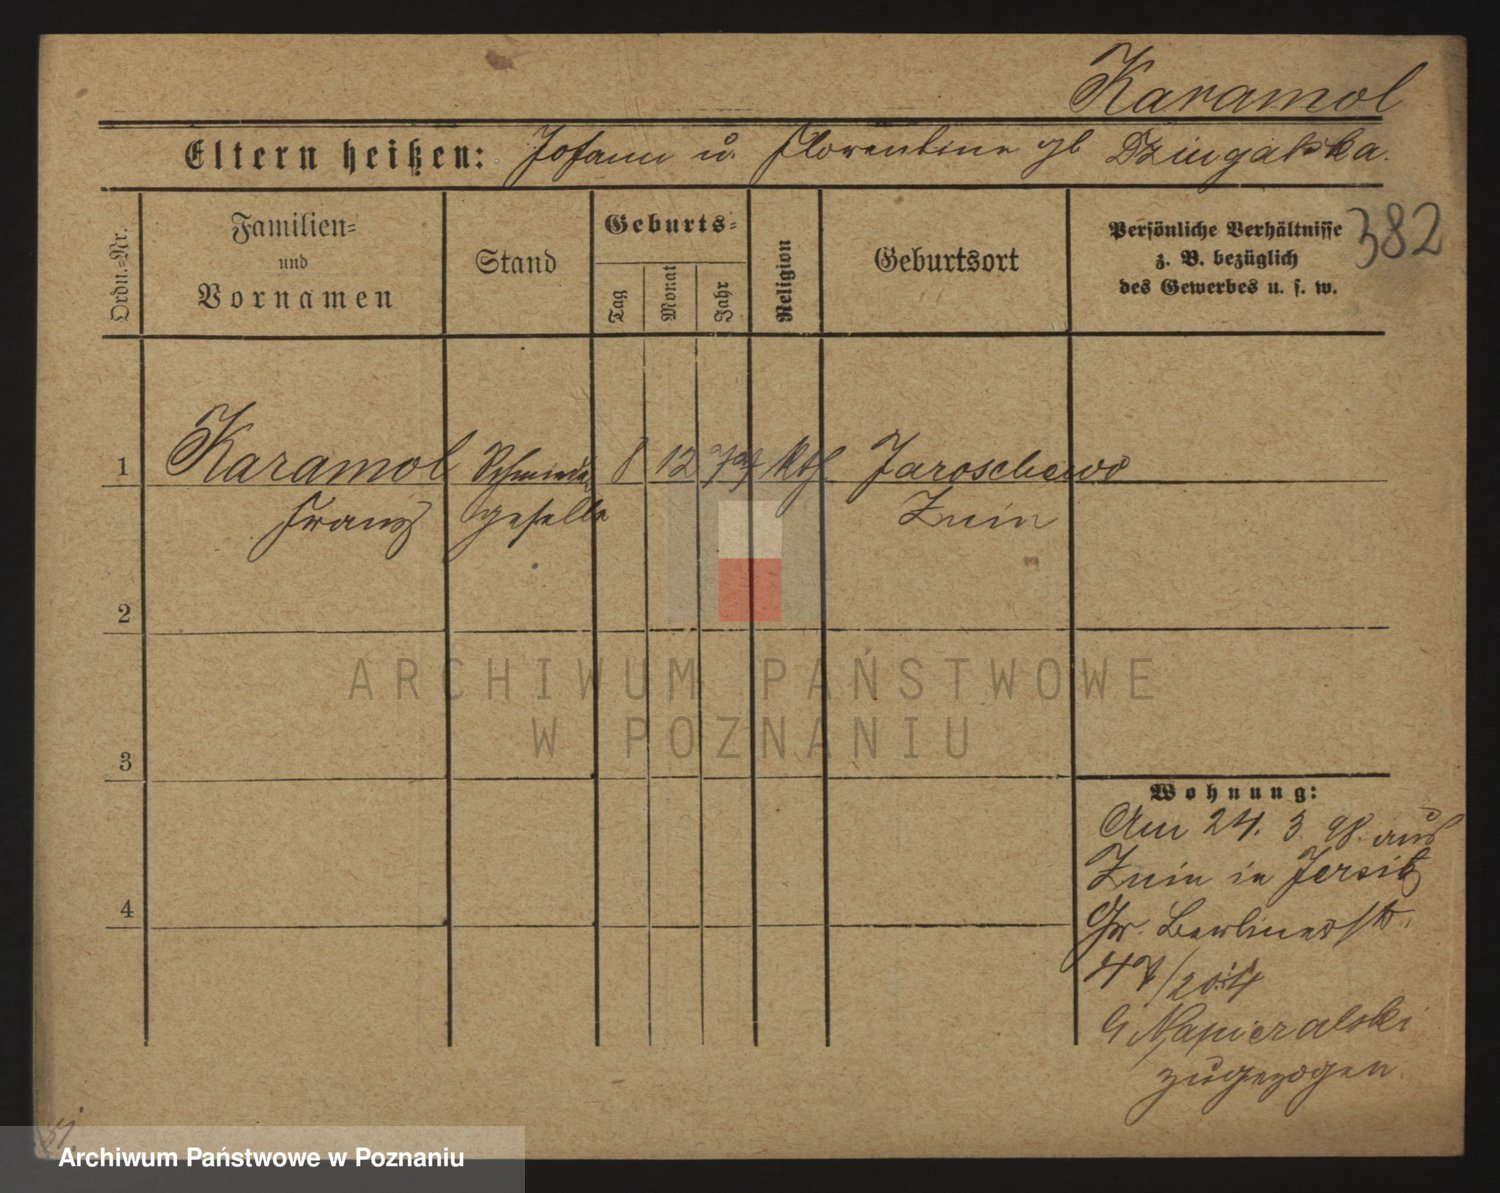 Karamol
Eltern heißen: Johann u. Florentine gb
382
Ordn.-Nr.
Familien-
und
Vornamen
Stand
Geburts-
Tag
Monat
Jahr
Religion
Geburtsort
Persönliche Verhältnisse
z. B. bezüglich
des Gewerbes u. s. w.
1 Karamol Schmiede 8 12 Kth Jaroschewo
Franz geselle Znin
2
3
4
ARCHIWUM PAŃSTWOWE
W POZNANIU
Wohnung:
Am 24. 3. 98. aus
Znin in Jersitz
Gr. Berlinerstr.
Napieralski
zugezogen
Archiwum Państwowe w Poznaniu